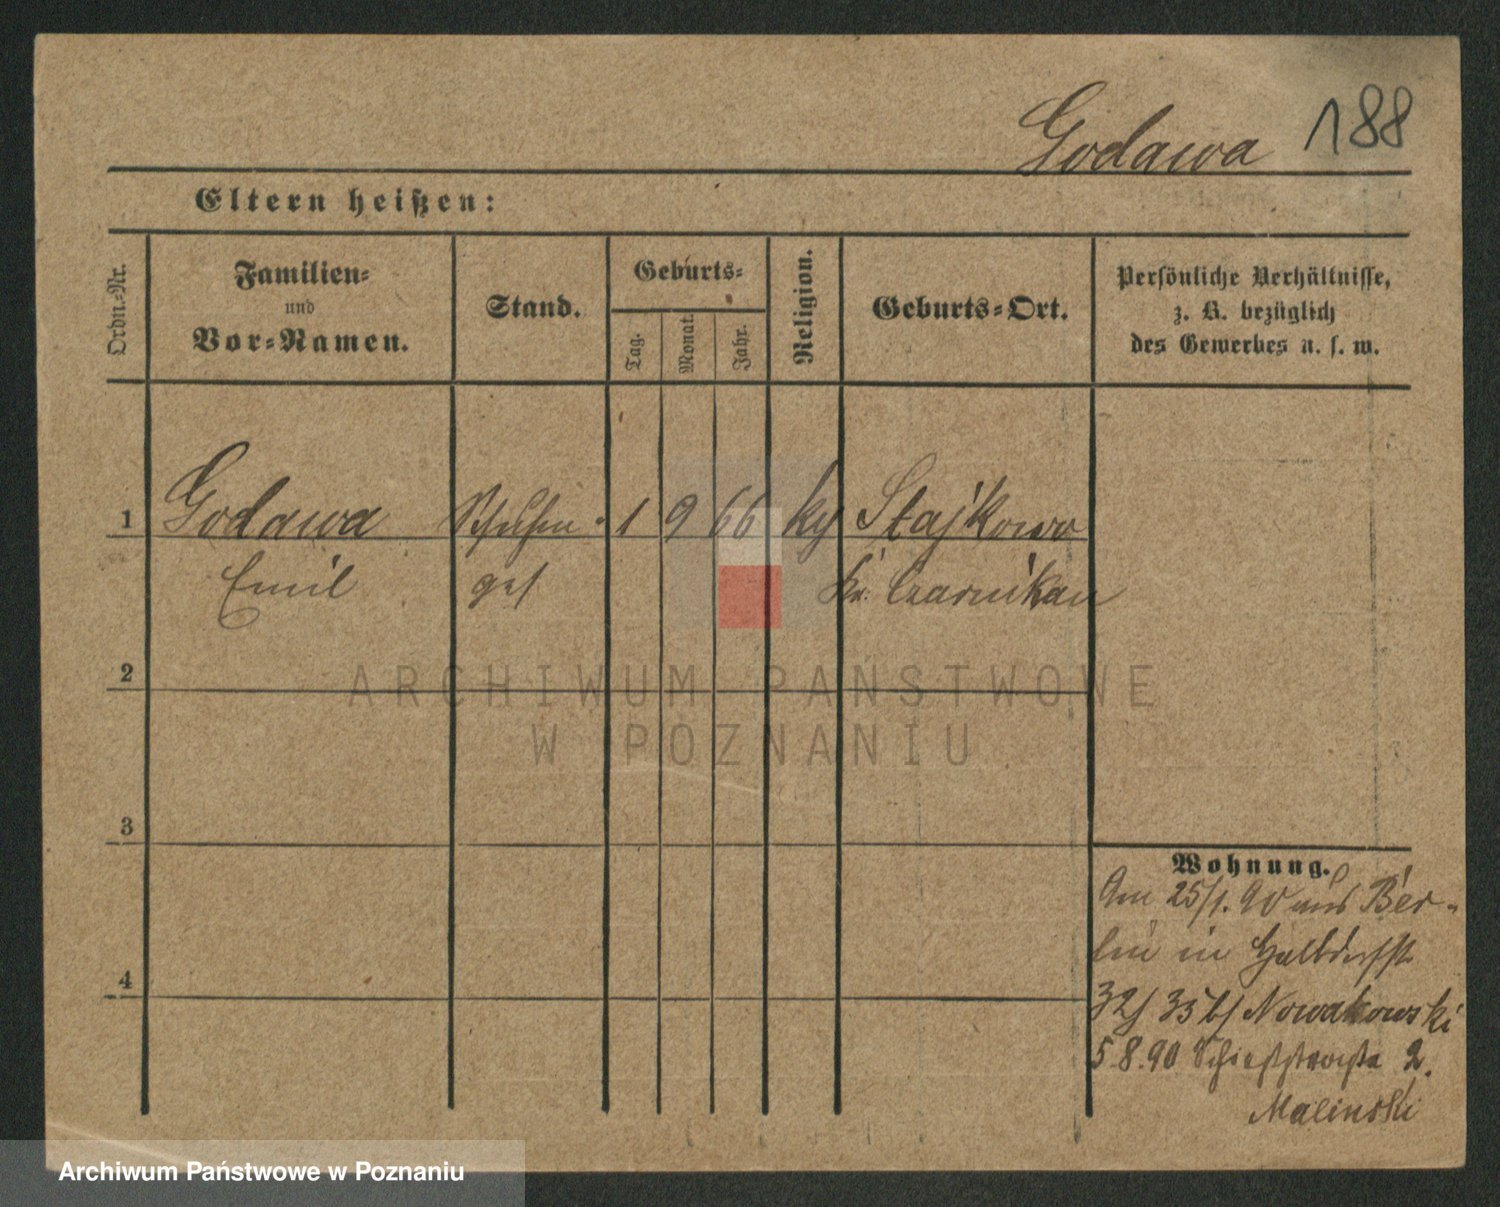 Godawa 188
Eltern heißen:
Ordn.-Nr.
Familien-
und
Vor-Namen.
Stand.
Geburts-
Tag.
Monat.
Jahr.
Religion.
Geburts-Ort.
Persönliche Verhältnisse,
z. B. bezüglich
des Gewerbes u. s. w.
1 Godawa 1 9 66 k Stajkowo
Emil ges Kr. Czarnikau
2
3
4
ARCHIWUM PAŃSTWOWE
W POZNANIU
Wohnung.
Am 25/1. 90 aus Ber-
lin in Halbdorfst
32/33 b/ Nowakowski
5.8.90 Schießstraße 2.
Malinski
Archiwum Państwowe w Poznaniu